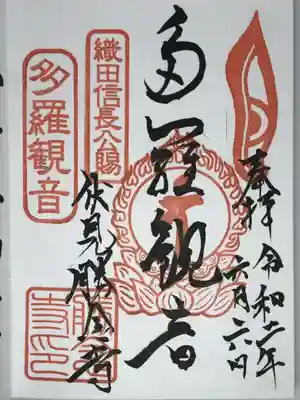 奉拝
令和二年
六月六日
多羅観音
織田信長公賜
伏見勝念寺
多羅観音
勝念寺印